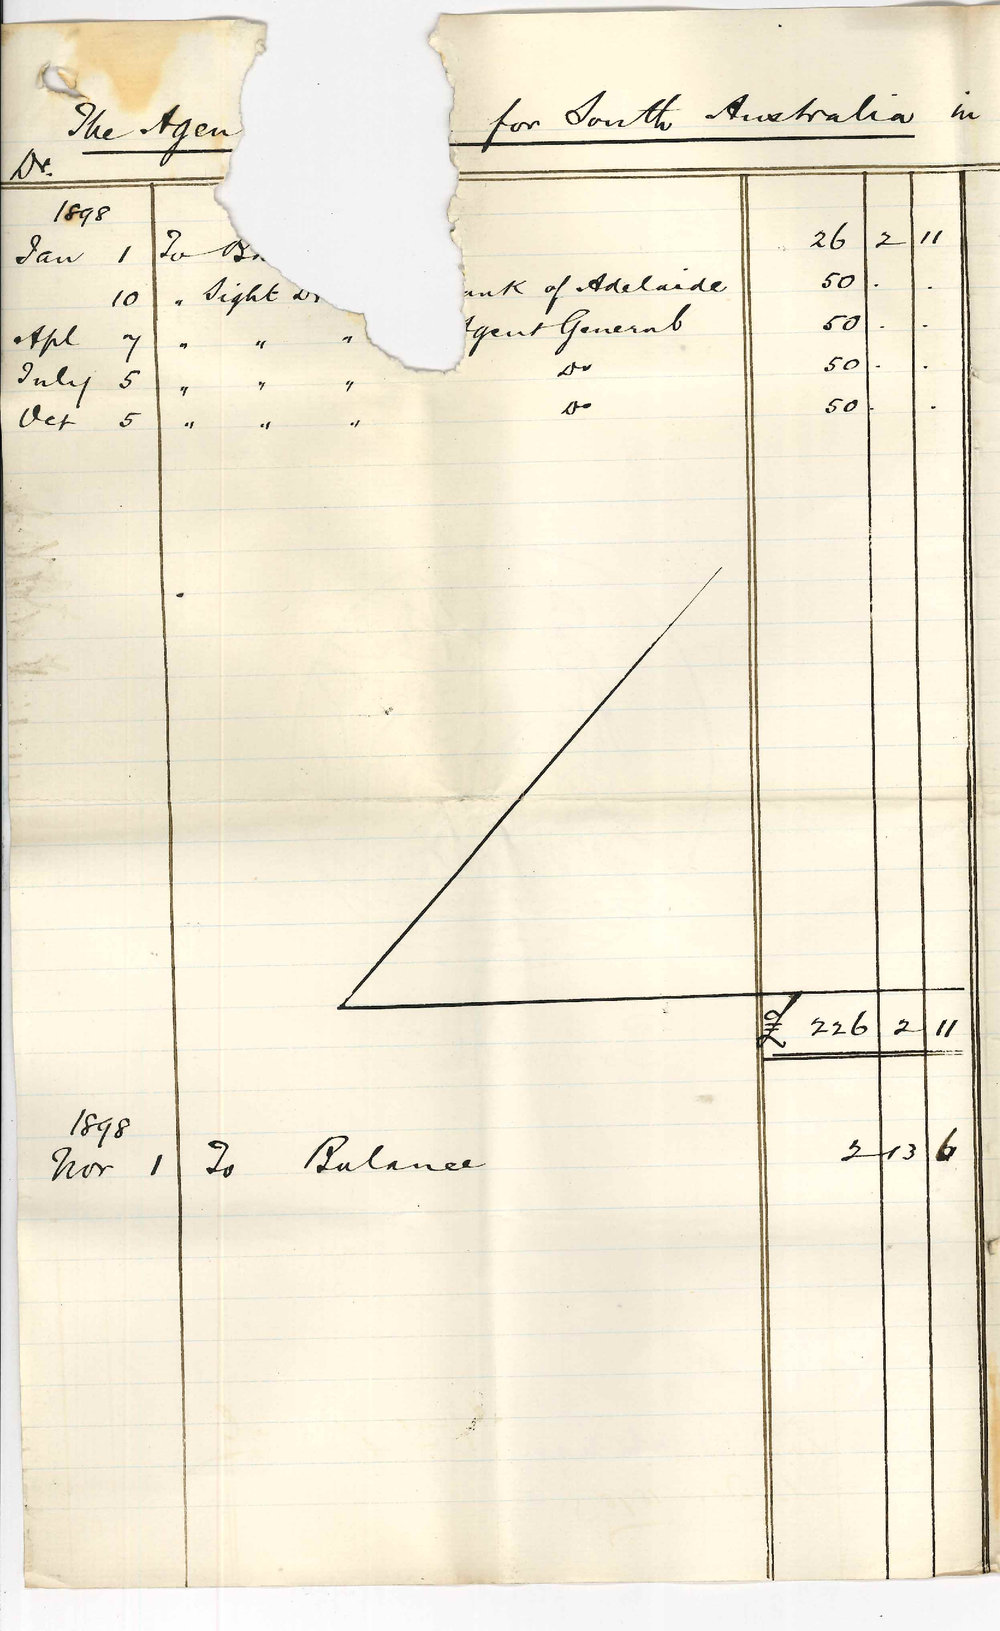 The Agen for South Australia in
Dr.
1898
Jan 1 To 26 2 11
10 " Sight Dr ank of Adelaide 50 . .
Apl 7 " " " Agent General 50 . .
July 5 " " " Do 50 . .
Oct 5 " " " Do 50 . .
£ 226 2 11
1898
Nov 1 To Balance 2 13 6